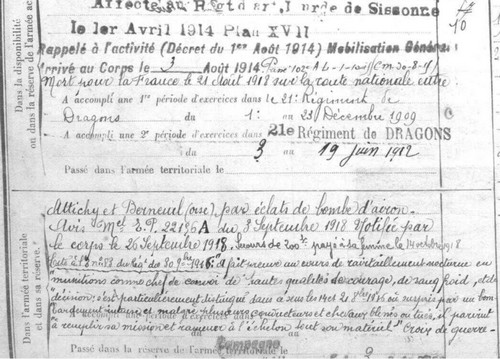 Affecté au Régt d'Art. Lourde de Sissonne
Le 1er Avril 1914 Plan XVII
Rappelé à l'activité (Décret du 1er Août 1914) Mobilisation Générale
Arrivé au Corps le 3 Août 1914
Mort pour la France le 21 Août 1918 sur la route nationale entre
A accompli une 1re période d'exercices dans le 21e Régiment de
Dragons du 1: au 23 Décembre 1909
A accompli une 2e période d'exercices dans 21e Régiment de DRAGONS
du 3 au 19 Juin 1912
Passé dans l'armée territoriale le
Dans la disponibilité
ou dans la réserve de l'armée
Attichy et Berneuil (oise) par éclats de bombe d'avion.
Avis Mel E.P. 22196 A du 3 Septembre 1918 Notifiée par
le corps le 26 Septembre 1918. Secours de 200f payé à la femme le 14 octobre 1918
Cité à l'O. n° 88 du Régt du 1916 "a fait preuve au cours de ravitaillement nocturne en
"munitions comme chef de convoi de hautes qualités de courage, de sang froid, et de
"décision; s'est particulièrement distingué dans surpris par un bom
bardement intense et malgré plusieurs conducteurs et chevaux blessés ou tués, est parvenu
à remplir sa mission et ramener à l'échelon tout son matériel" Croix de guerre -
Dans l'armée territoriale
et dans sa réserve.
A accompli une période d'exercices dans
Campagne
Passé dans la réserve de l'armée territoriale le